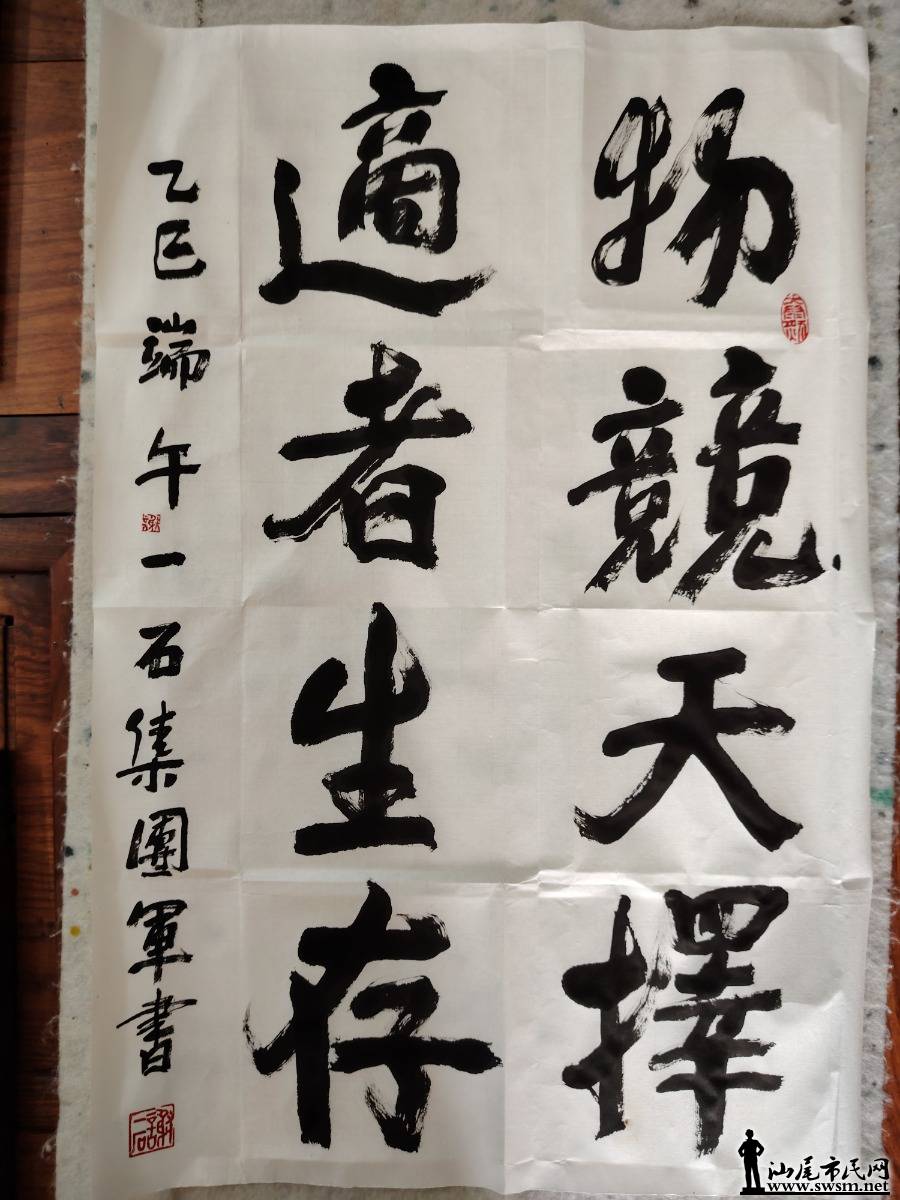 物競天擇
適者生存
乙巳端午一石集團軍書
汕尾市民网
www.swsm.net